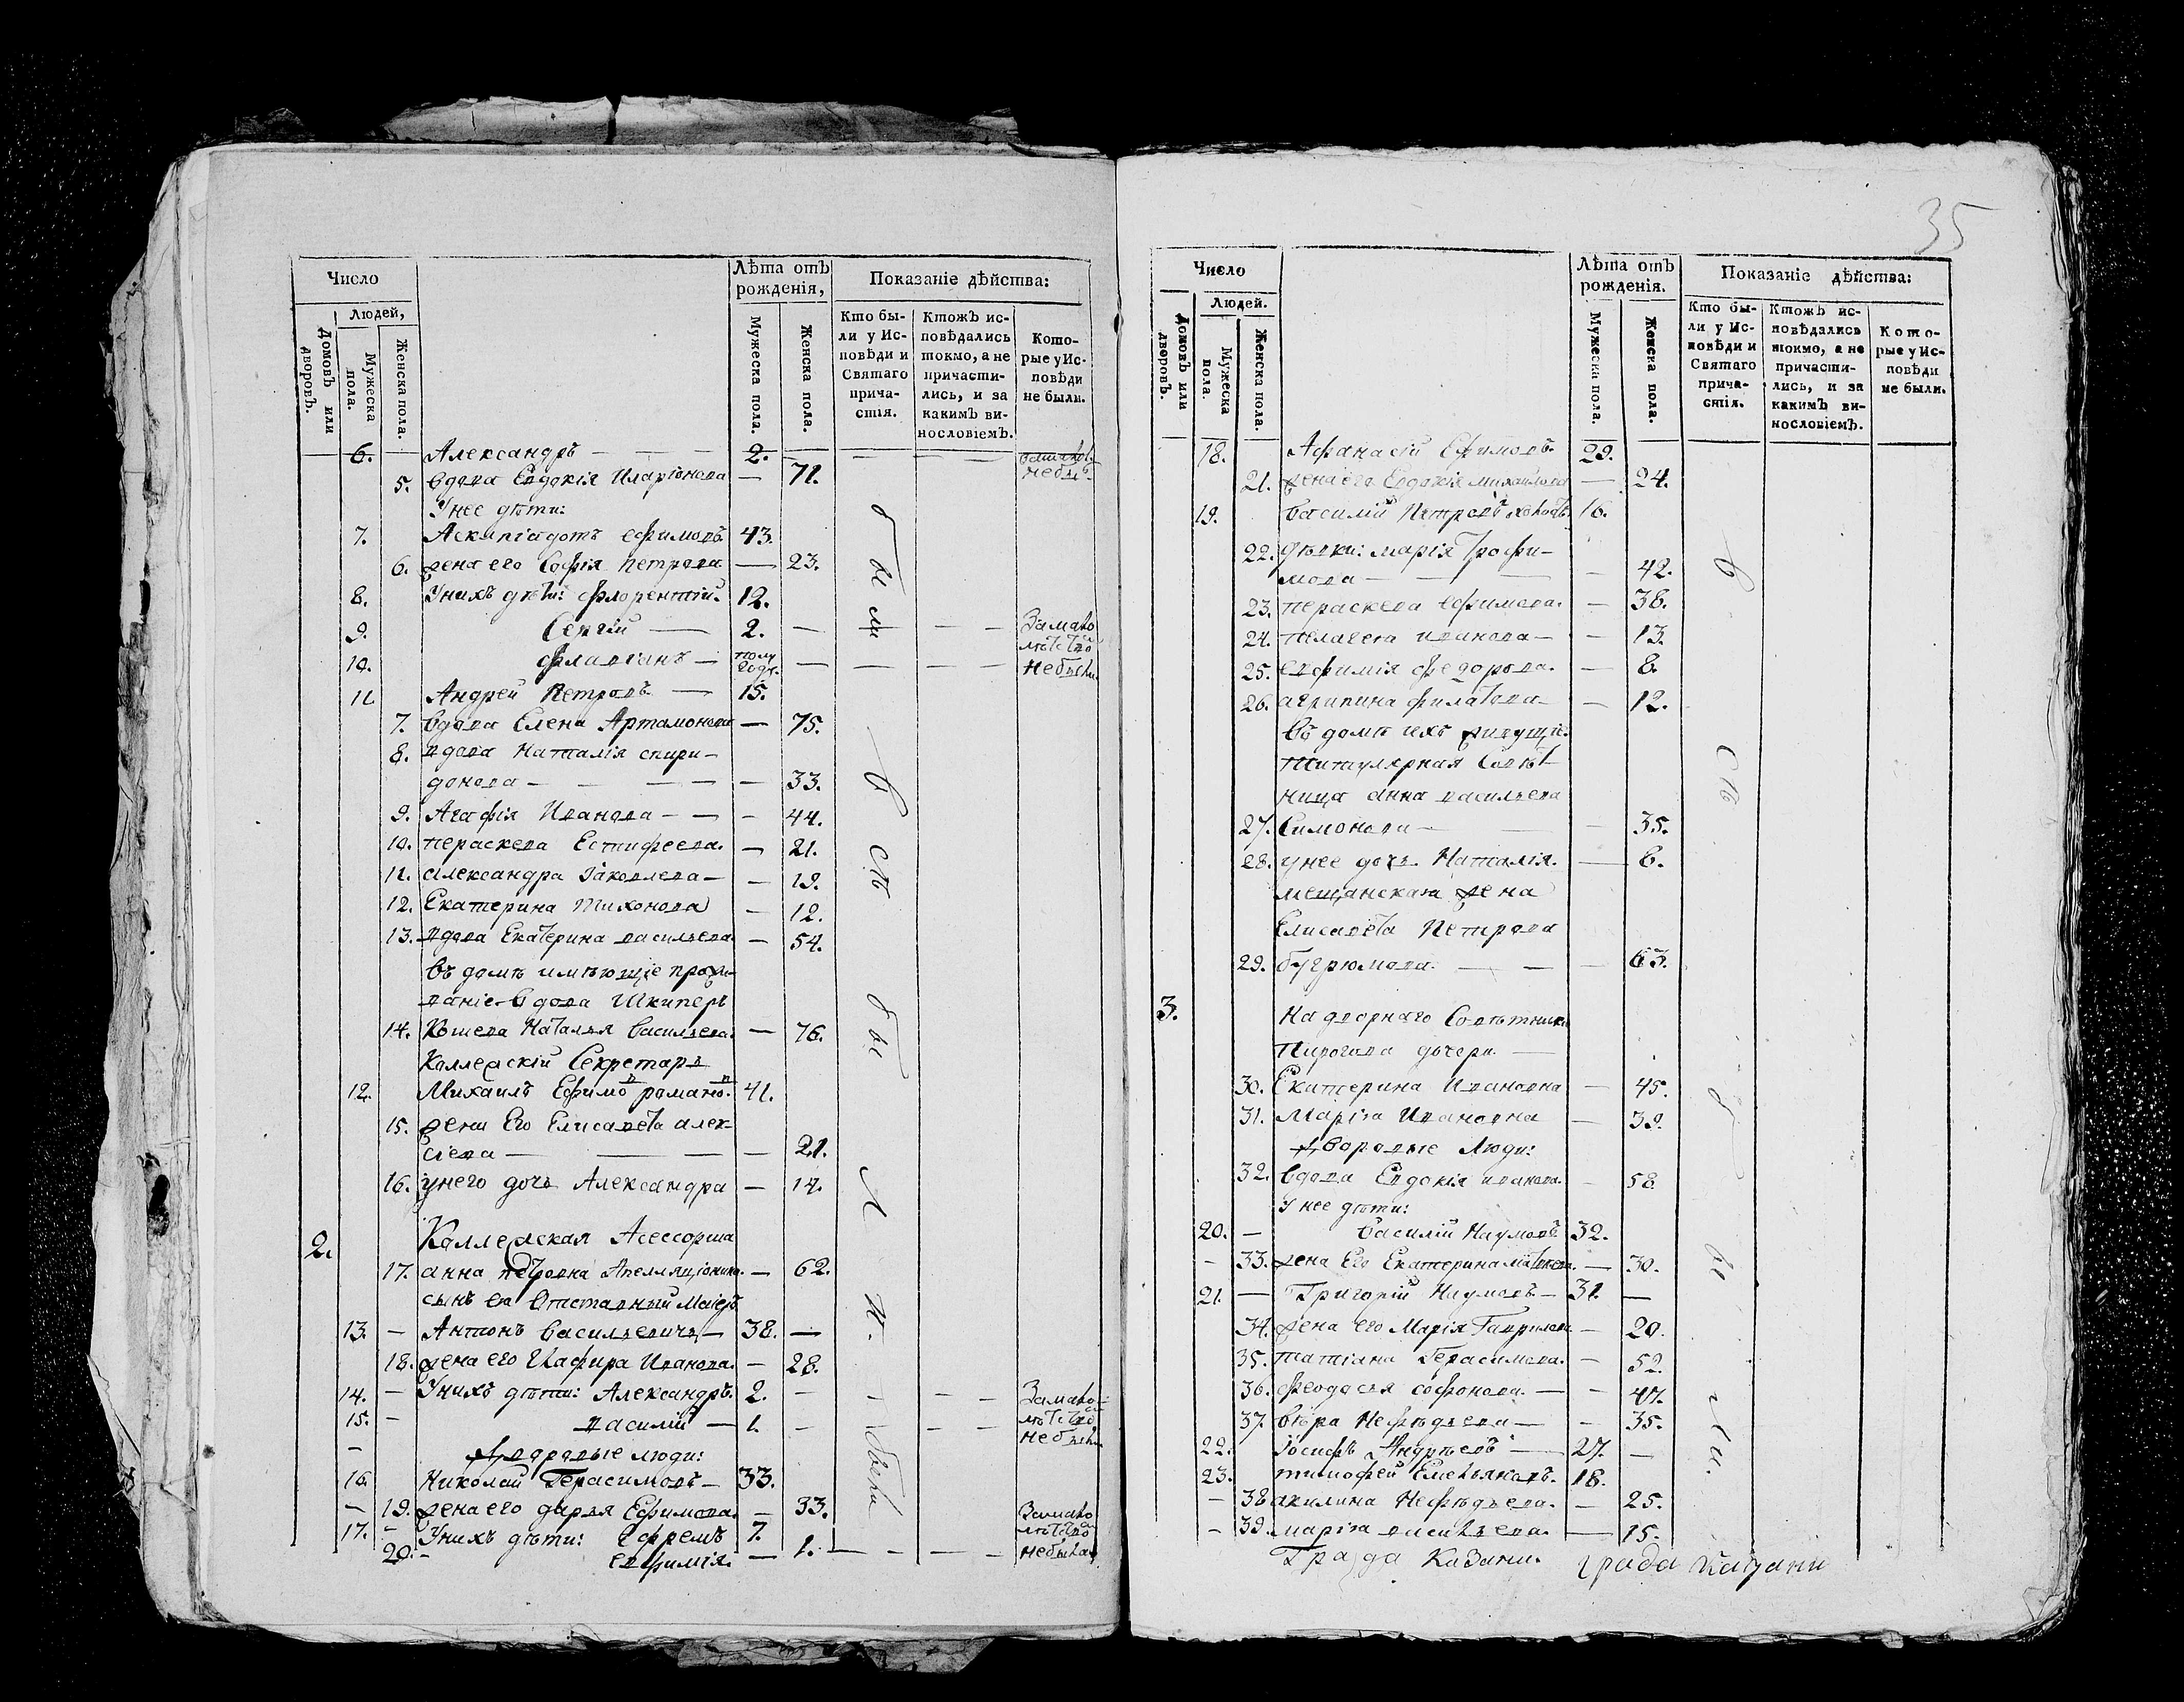 Число
Людей,
Домовъ или дворовъ.
Мужеска пола.
Женска пола.
Лѣта отъ рожденія,
Мужеска пола.
Женска пола.
Показаніе дѣйства:
Кто были у Исповѣди и Святаго причастія.
Ктожъ исповѣдались токмо, а не причастились, и за какимъ винословіемъ.
Которые у Исповѣди не были.
6. Александръ — 2. —
небы
5. вдова Евдокія Иларіонова — 71.
У нее дѣти:
7. Асклипіадотъ Ефимовъ 43.
6. жена его Софія Петрова — 23.
8. У нихъ дѣти: Флорентій. 12.
9. Сергій — 2. — Замало
лѣтство
10. Флавіанъ — полу
годъ. — небыли
11. Андрей Петровъ — 15.
7. вдова Елена Артамонова — 75.
8. вдова Наталія спири-
донова — 33.
9. Агафія Иванова — 44.
10. пераскева Естифеева. — 21.
11. александра Іаковлева — 19.
12. Екатерина Тихонова — 12.
13. вдова Екатерина васильева — 54.
въ домѣ имѣющіе прожи-
ваніе вдова Шкипер
14. Наталья Васильева. — 76.
Коллежскій Секретарь
12. Михаилъ Ефимовъ романовъ. 41.
15. жена Его Елисавета алек-
сіева — 21.
16. у него дочь Александра — 14.
2. Коллежская Асессорша
17. анна петровна Апелляціонина. — 62.
сынъ ея Отставный Маіоръ
13. — Антонъ Васильевичъ — 38. —
18. жена его Глафира Иванова. — 28.
14. — У нихъ дѣти: Александръ. 2. — Замало-
15. — василій — 1. — лѣтство
небыли
Дворовые люди:
16. Николай Герасимовъ — 33.
19. жена его дарья Ефимова. — 33.
17. У нихъ дѣти: Ефремъ 7. Замало
лѣтство
20. Евфимія. — 1. — небыли
были
въ
сп
бы
ли
35
Число
Людей.
Домовъ или дворовъ.
Мужеска пола.
Женска пола.
Лѣта отъ рожденія.
Мужеска пола.
Женска пола.
Показаніе дѣйства:
Кто были у Исповѣди и Святаго причастія.
Ктожъ исповѣдались токмо, а не причастились, и за какимъ винословіемъ.
Которые у Исповѣди не были.
18. Афанасій Ефимовъ. 29.
21. жена его Евдокія михаилова — 24.
19. Василій Петровъ 16.
22. дѣвки: марія Трофи-
мова — 42.
23. пераскева ефимова. — 38.
24. пелагея иванова — 13.
25. евфимія федорова. — 8.
26. агрипина филатова — 12.
въ домѣ ихъ живущіе.
Титулярная Совѣт-
ница анна васильева
27. Симонова — 35.
28. у нее дочь Наталія. — 6.
мещанская жена
Елисавета Петрова
29. бугрюмова. — 63.
3. Надворнаго Совѣтника
Пирогова дочери —
30. Екатерина Ивановна — 45.
31. Марія Ивановна — 39.
Дворовые Люди:
32. вдова Евдокія иванова — 58
У нее дѣти:
20. — Василій Наумовъ 32.
33. жена Его Екатерина матвеева. — 30.
21. — Григорій Наумовъ — 31. —
34. жена его Марія Гаврилова — 20.
35. татіана Герасимова. — 52.
36. феодосья софонова. — 47.
37. вѣра Нефѣдьева — 35.
22. Іосифъ Андреевъ — 27. —
23. тимофей Емельяновъ. 18.
38. акилина Нефѣдьева. — 25.
39. марія васильева. — 15.
Града Казани. града казани